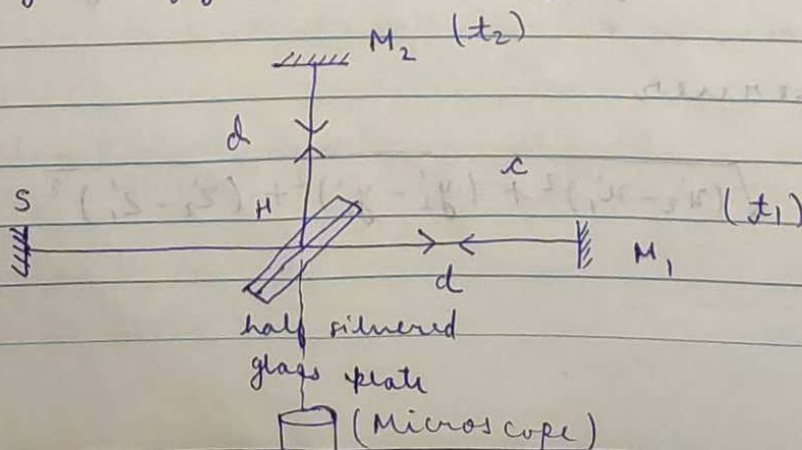 M₂ (t₂)
d
c
S
H
(t₁)
M₁
d
half silvered
glass plate
(Microscope)